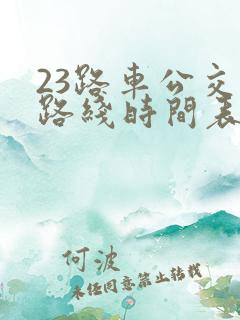 23路車公交
路綫時間表
何波
未经同意禁止转载